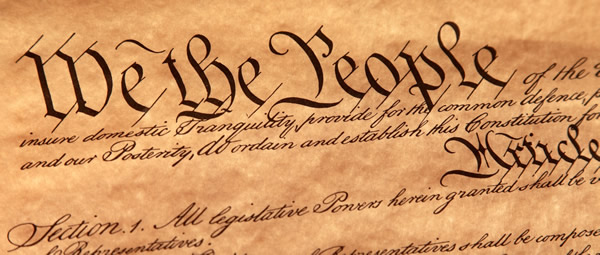 We the People of the
insure domestic Tranquility, provide for the common defence,
and our Posterity, do ordain and establish this Constitution for
Article
Section. 1. All legislative Powers herein granted shall be
Representatives.
Representatives shall be compose